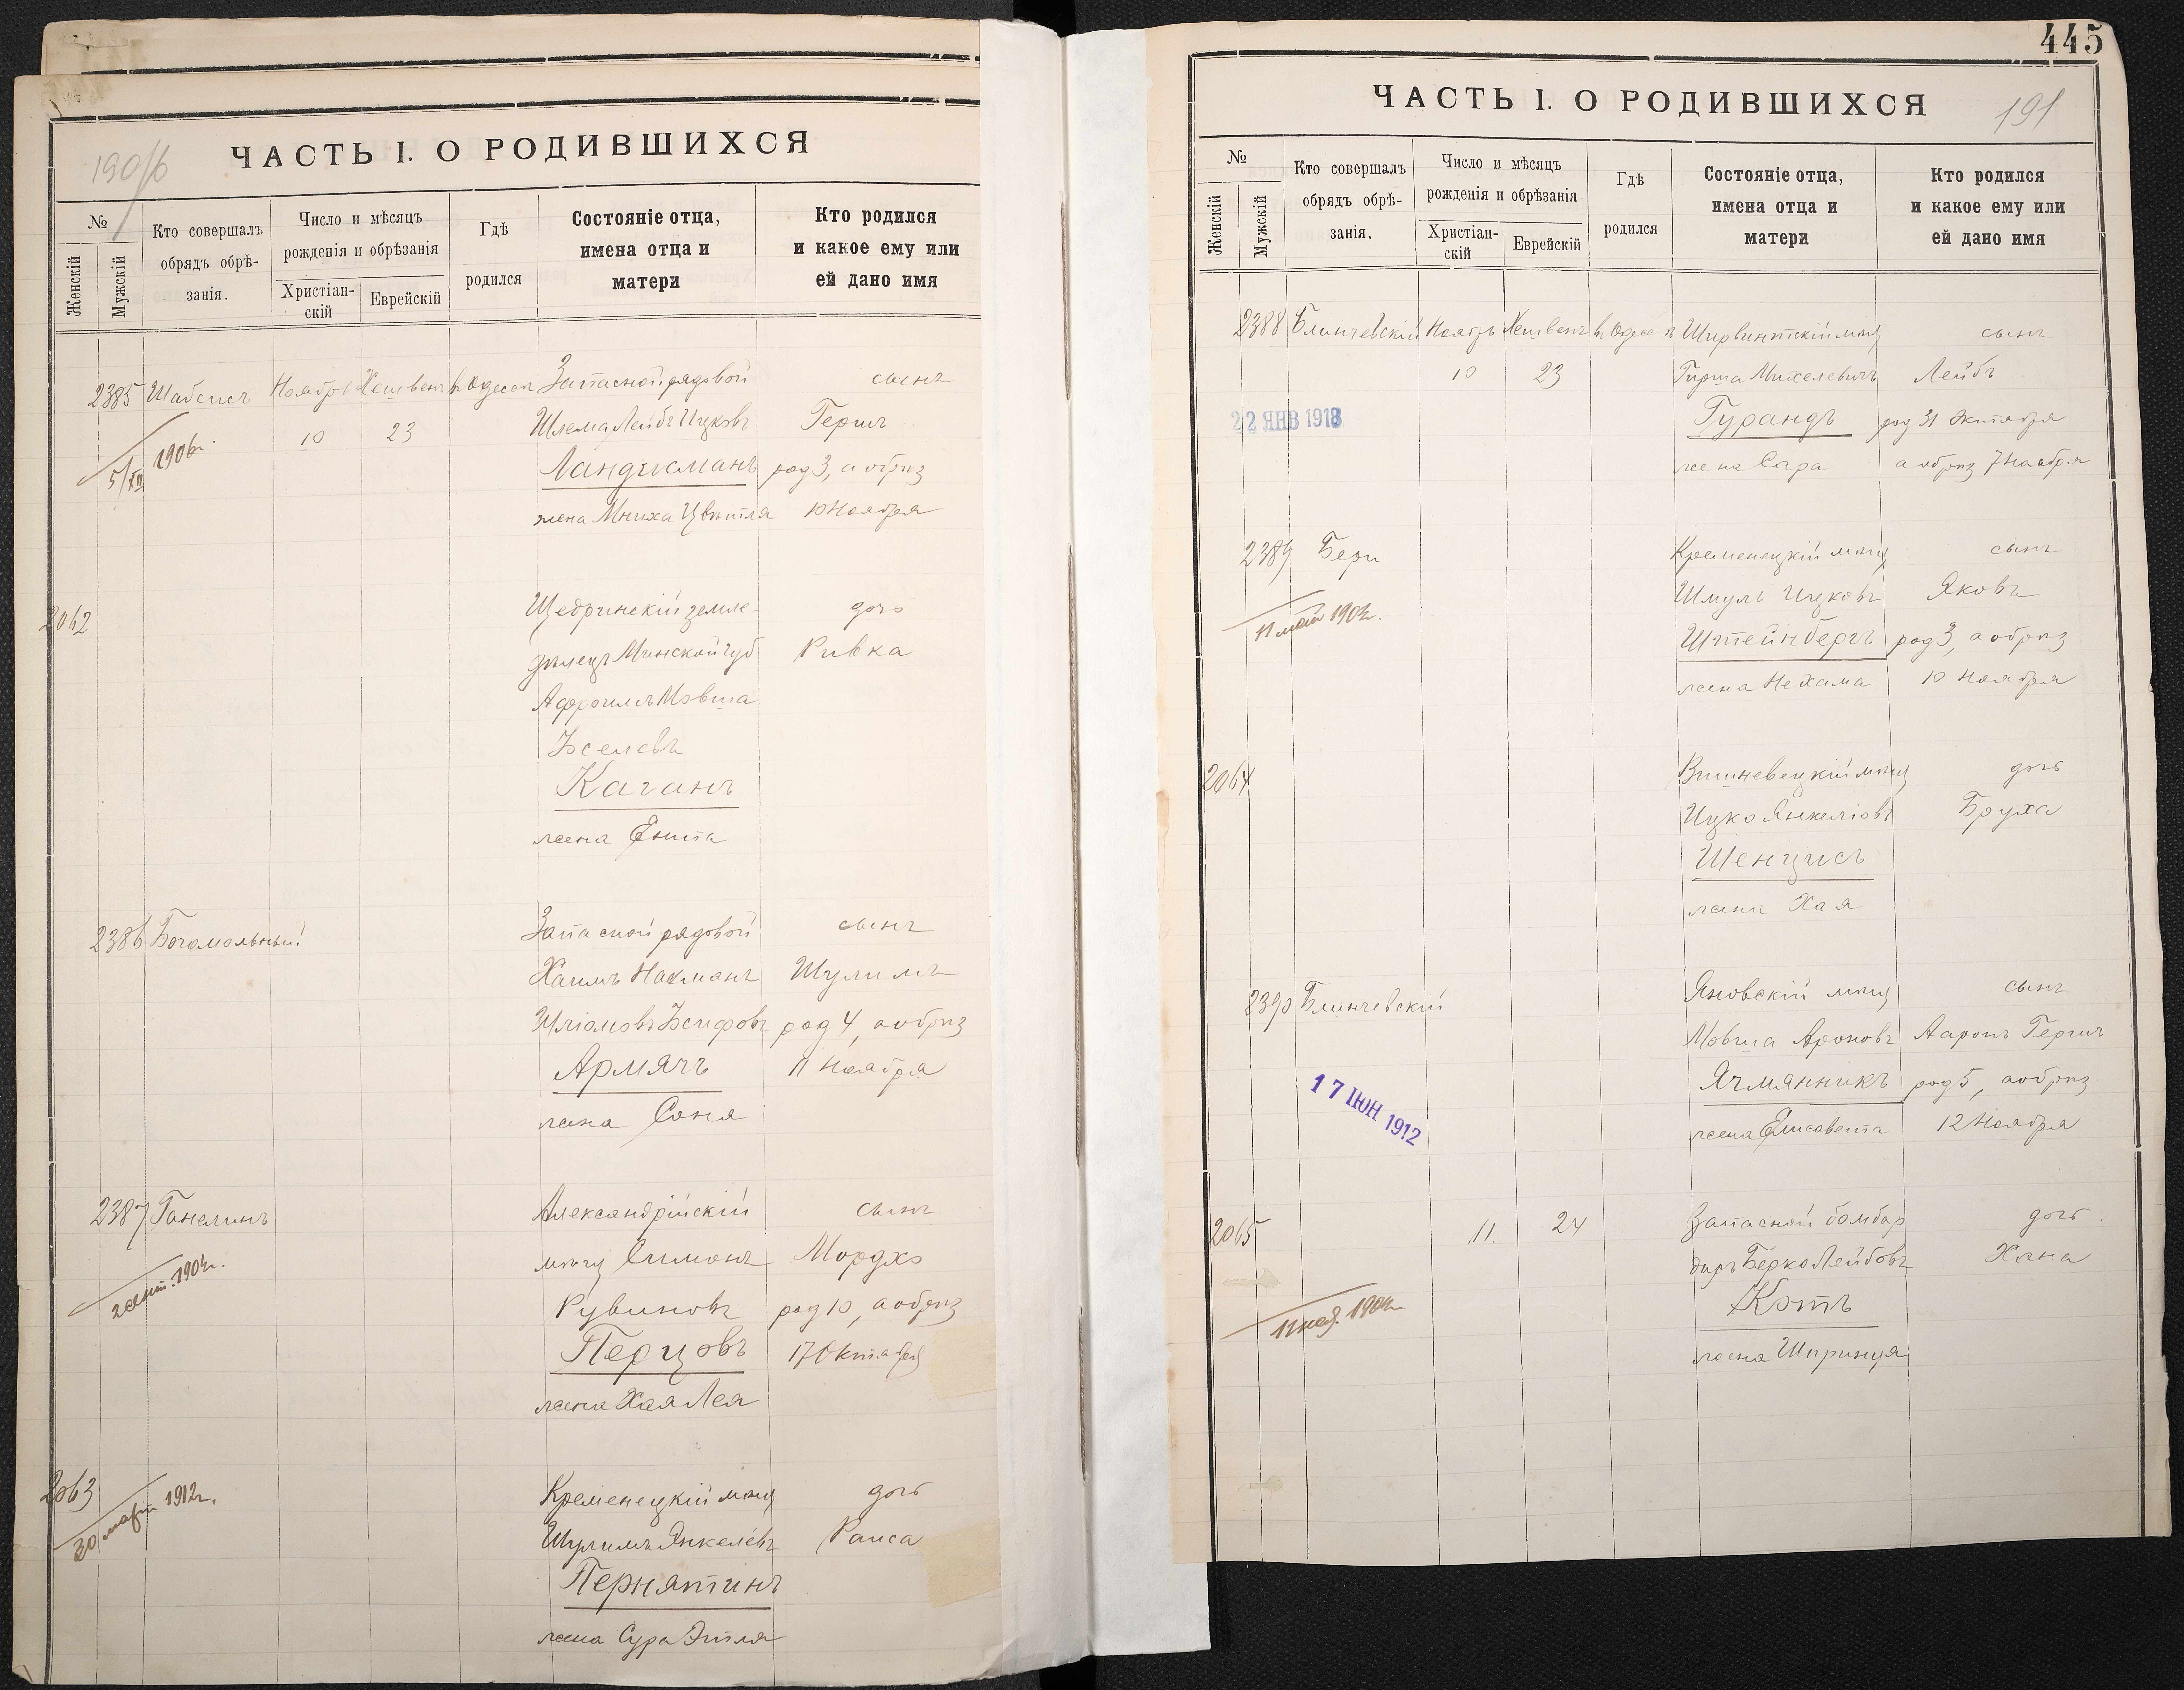 190/б
ЧАСТЬ I. О РОДИВШИХСЯ
№
Женскій
Мужскій
Кто совершалъ
обрядъ обрѣ-
занія.
Число и мѣсяцъ
рожденія и обрѣзанія
Христіан-
скій
Еврейскій
Гдѣ
родился
Состояніе отца,
имена отца и
матери
Кто родился
и какое ему или
ей дано имя
2385 Шабсисъ Ноябрь Хешвенъ въ Одессѣ Запасной рядовой сынъ
10 23 Шлема Лейбъ Ицковъ Гершъ
5/XII 1906г.
Ландисманъ род 3, а обрѣз
жена Мниха Цвѣтля 10 Ноября
2062 Щедринскій земле- дочь
дѣлецъ Минской губ Ривка
Афроимъ Мовша
Іоселевъ
Каганъ
жена Ента
2386 Богомольный Запасной рядовой сынъ
Хаимъ Нахманъ Шулимъ
Іосифовъ род 4, а обрѣз
Армячъ 11 Ноября
жена Соня
2387 Ганелинъ Александрійскій сынъ
мѣщ Симонъ Мордко
2 сент. 1904г.
Рувиновъ род 10, а обрѣз
Перцовъ 17 Октября
жена Хая Лея
2063 Кременецкій мѣщ дочь
30 март 1912г.
Шулимъ Янкелевъ Раиса
Пернятинъ
жена Сура Этля
445
ЧАСТЬ I. О РОДИВШИХСЯ
191
№
Женскій
Мужскій
Кто совершалъ
обрядъ обрѣ-
занія.
Число и мѣсяцъ
рожденія и обрѣзанія
Христіан-
скій
Еврейскій
Гдѣ
родился
Состояніе отца,
имена отца и
матери
Кто родился
и какое ему или
ей дано имя
2388 Блинчевскій Ноябрь Хешвенъ въ Одессѣ Ширвинтскій мѣщ сынъ
10 23 Гирша Михелевичъ Лейбъ
22 ЯНВ 1913
Гурандъ род 31 Октября
жена Сара а обрѣз 7 Ноября
2389 Бери Кременецкій мѣщ сынъ
Шмуль Ицковъ Яковъ
11 май 1904г.
Штейнбергъ род 3, а обрѣз
жена Нехама 10 Ноября
2064 Вишневецкій мѣщ дочь
Ицко Янкеліовъ Бруха
Шенцисъ
жена Хая
2390 Блинчевскій Яновскій мѣщ сынъ
Мовша Ароновъ Ааронъ Гершъ
Ячмянникъ род 5, а обрѣз
17 ІЮН 1912
жена Елисавета 12 Ноября
2065 11 24 Запасной бомбар дочь
диръ Берко Лейбовъ Хана
Котъ
жена Шпринця